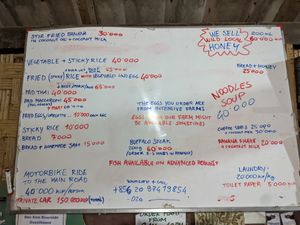 STIR FRIED BANANA 30'000
IN COCONUT OIL + COCONUT MILK
WE SELL
WILD LOCAL
HONEY
200 ML
VEGETABLE + STICKY RICE 40'000
BREAD + HONEY
25'000
FRIED RICE WITH VEGETABLES AND EGG 40'000
PAD THAI 40'000
PAD MACCARONI 45'000
NOODLES
SOUP
40'000
THE EGGS YOU ORDER ARE
FROM INTENSIVE FARMS
EGGS FROM OUR FARM MIGHT BE
AVAILABLE SOMETIMES
STICKY RICE 10'000
BREAD 5'000
BREAD + HOMEMADE JAM 15'000
BUFFALO STEAK
200g 60'000
BANANA SHAKE 20'000
+ COCONUT MILK
FISH AVAILABLE ON ADVANCED REQUEST
MOTORBIKE RIDE
TO THE MAIN ROAD
40'000 KIP/PERSON
PRIVATE CAR 150'000
+856 20 97419854
LAUNDRY
20'000 KIP/KG
TOILET PAPER 5'000 KIP
ORDER FOOD